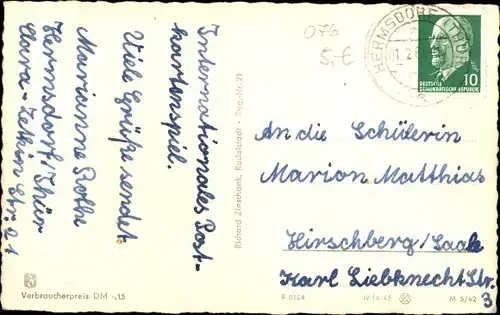 Internationales Post-
kartenspiel.
Viele Grüße sendet
Marianne
Hermsdorf/Thür
Clara-Zetkin Str. 21
Richard Zieschank, Rudolstadt - Reg.-Nr. 21
Verbraucherpreis DM -,15
076
5,-€
HERMSDORF (THÜR)
10
DEUTSCHE
DEMOKRATISCHE REPUBLIK
An die Schülerin
Marion Matthias
Hirschberg/Saale
Karl Liebknecht Str.
3
F 0164
IV-14-45
M 5/62